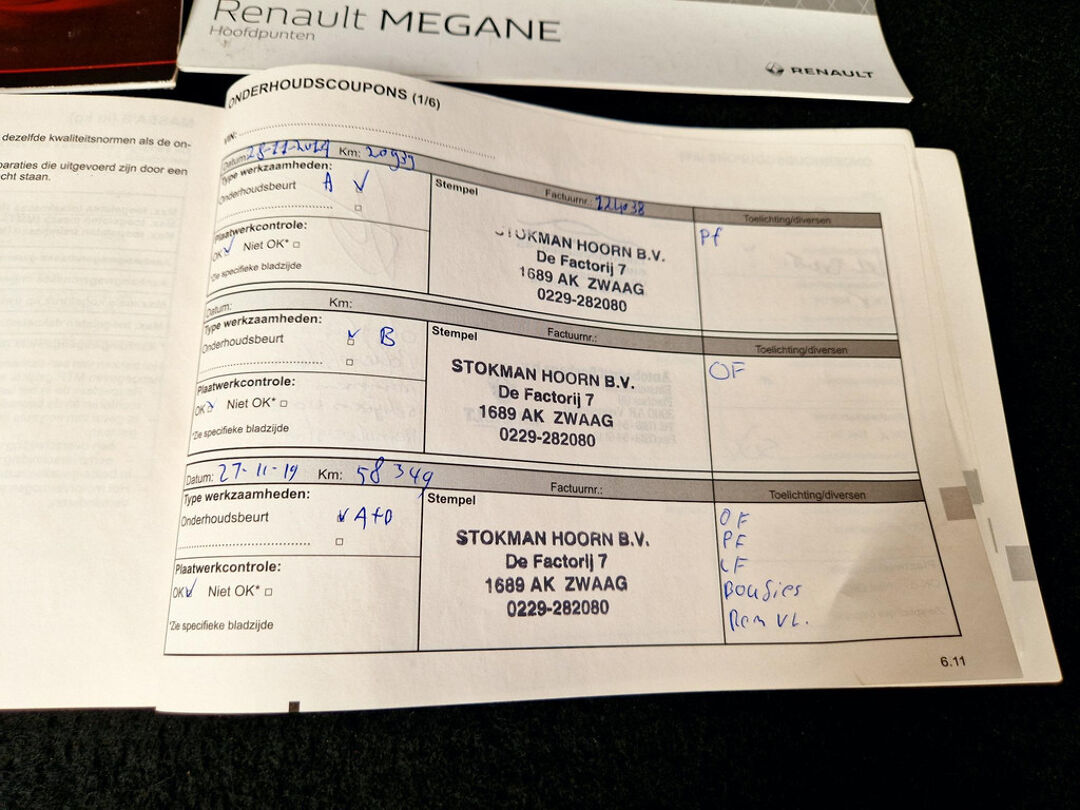 Renault MEGANE
Hoofdpunten
RENAULT
dezelfde kwaliteitsnormen als de on-
paraties die uitgevoerd zijn door een
cht staan.
ONDERHOUDSCOUPONS (1/6)
VIN:
Datum: Km: 20939
Type werkzaamheden:
Onderhoudsbeurt A
Plaatwerkcontrole:
OK Niet OK*
*Zie specifieke bladzijde
Stempel
Factuurnr.:
STOKMAN HOORN B.V.
De Factorij 7
1689 AK ZWAAG
0229-282080
Toelichting/diversen
Pf
Datum: Km:
Type werkzaamheden:
Onderhoudsbeurt B
Plaatwerkcontrole:
OK Niet OK*
*Zie specifieke bladzijde
Stempel
Factuurnr.:
STOKMAN HOORN B.V.
De Factorij 7
1689 AK ZWAAG
0229-282080
Toelichting/diversen
OF
Datum: 27-11-19 Km: 58349
Type werkzaamheden:
Onderhoudsbeurt A+D
Plaatwerkcontrole:
OK Niet OK*
*Zie specifieke bladzijde
Stempel
Factuurnr.:
STOKMAN HOORN B.V.
De Factorij 7
1689 AK ZWAAG
0229-282080
Toelichting/diversen
OF
PF
LF
Bougies
Rem VL.
6.11